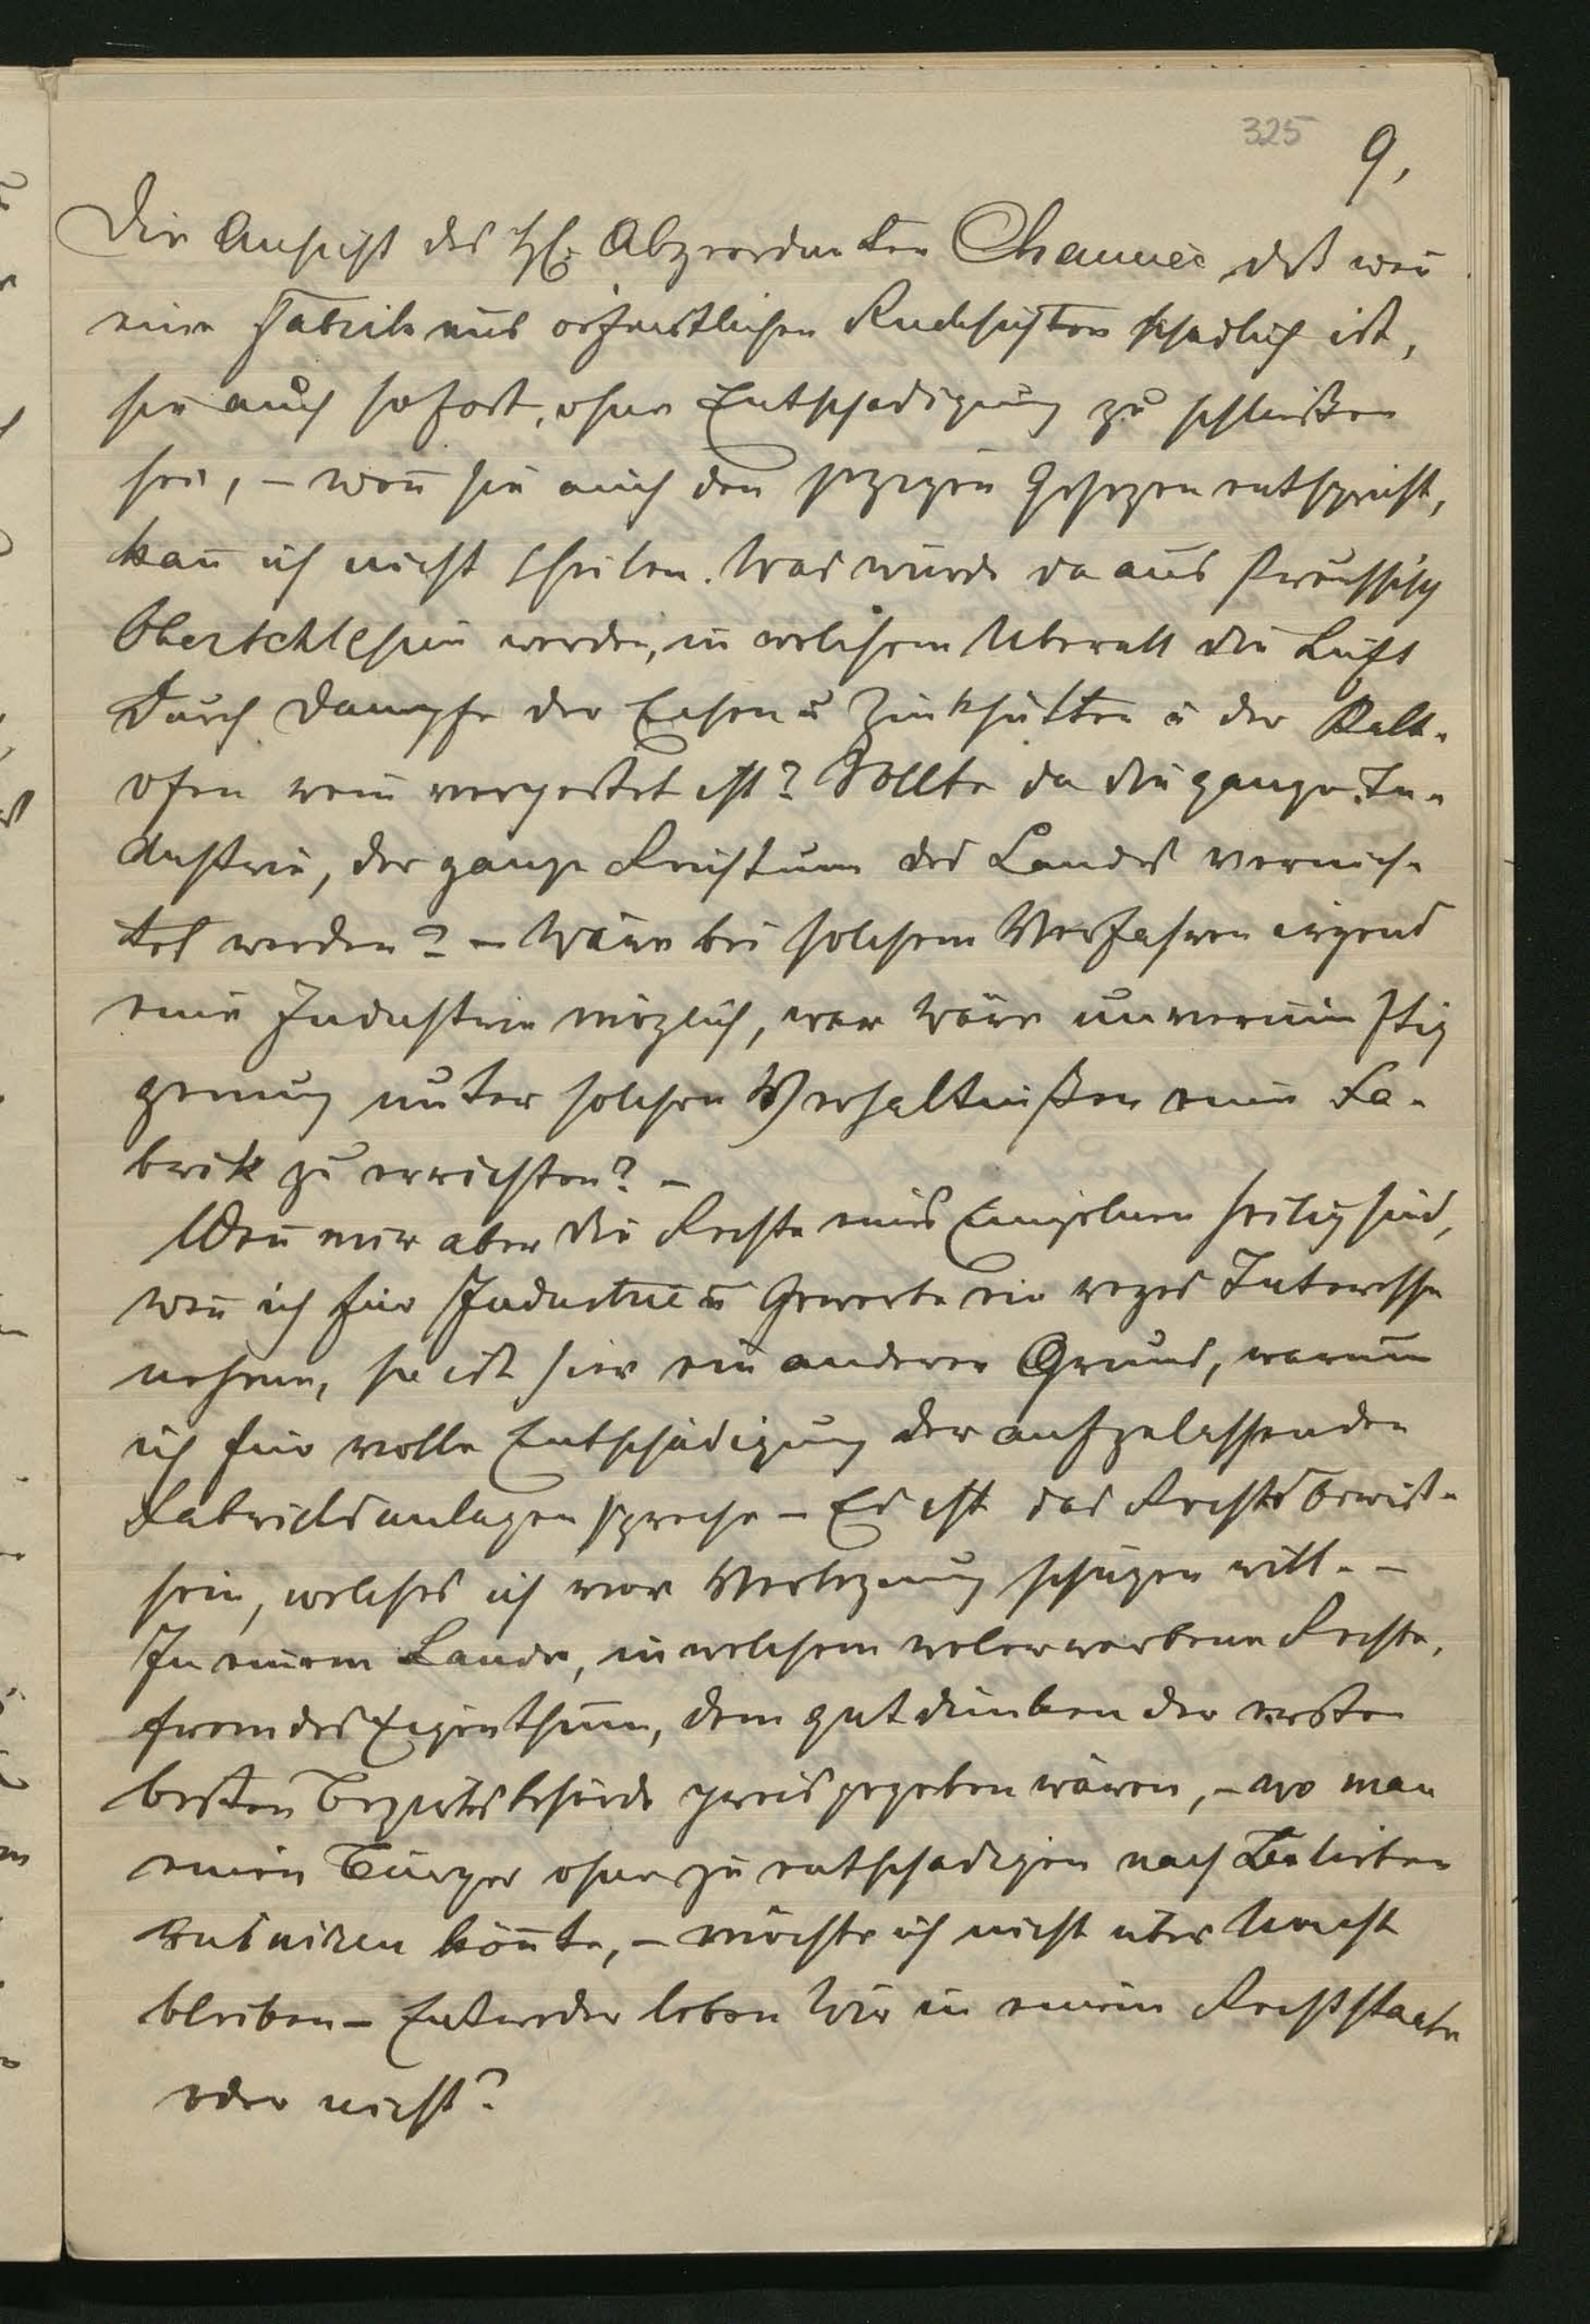 325 9,
Die Ansicht des H: Abgeordneten Chamiec daß wen̄
eine Fabrik aus oeffentlichen Rucksichten schadlich ist,
sie auch sofort, ohne Entschadigung zu schließen
sei, – wen̄ sie auch den jezigen Gesezen entspricht,
kan̄ ich nicht theilen. Was wurde da aus Preussisch
Oberschlesien werden, in welchem Uberall die Luft
Durch Dampfe der Eisen u Zinkhütten u der Kalk-
ofen verpestet ist? Sollte da die ganze In-
dustrie, der ganze Reichtum des Landes vernich-
tet werden? – Wäre bei solchem Verfahren irgend
eine Industrie möglich, wer wäre unvernünftig
genug unter solchen Verhaltnißen eine Fa-
brik zu errichten? –
Wen̄ mir aber die Rechte eines Einzelnen heilig sind,
wen̄ ich für Industrie u Gewerbe ein reges Interesse
nehme, so ist hier ein anderer Grund, warum
ich für volle Entschädigung der aufzulassenden
Fabricksanlagen spreche – Es ist das Rechtsbewißt-
sein, welches ich vor Verlezung schüzen will. –
In einem Lande, in welchem wolerworbene Rechte,
fremdes Eigenthum, dem gutdünken der ersten
besten Bezirksbehörde preisgegeben wären, – wo man
einen Bürger ohne zu entschadigen nach Belieben
ruiniren kön̄te, – möchte ich nicht uber Nacht
bleiben – Entweder leben Wir in einem Rechtsstaate
oder nicht?